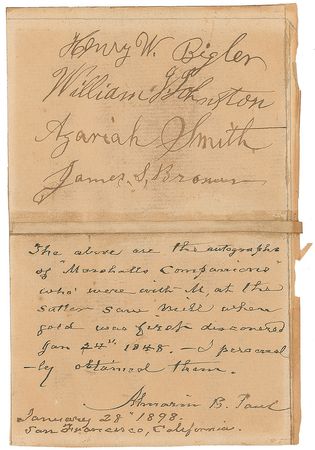 Henry W. Bigler
William J. Johnston
Azariah Smith
James S, Brown
The above are the autographs
of "Marshalls Companions"
who were with M, at the
Sutter Saw Mill when
gold was first discovered
Jan 24th 1848. — I personal
-ly obtained them.
Almarin B. Paul
January 28th 1898.
San Francisco, California.